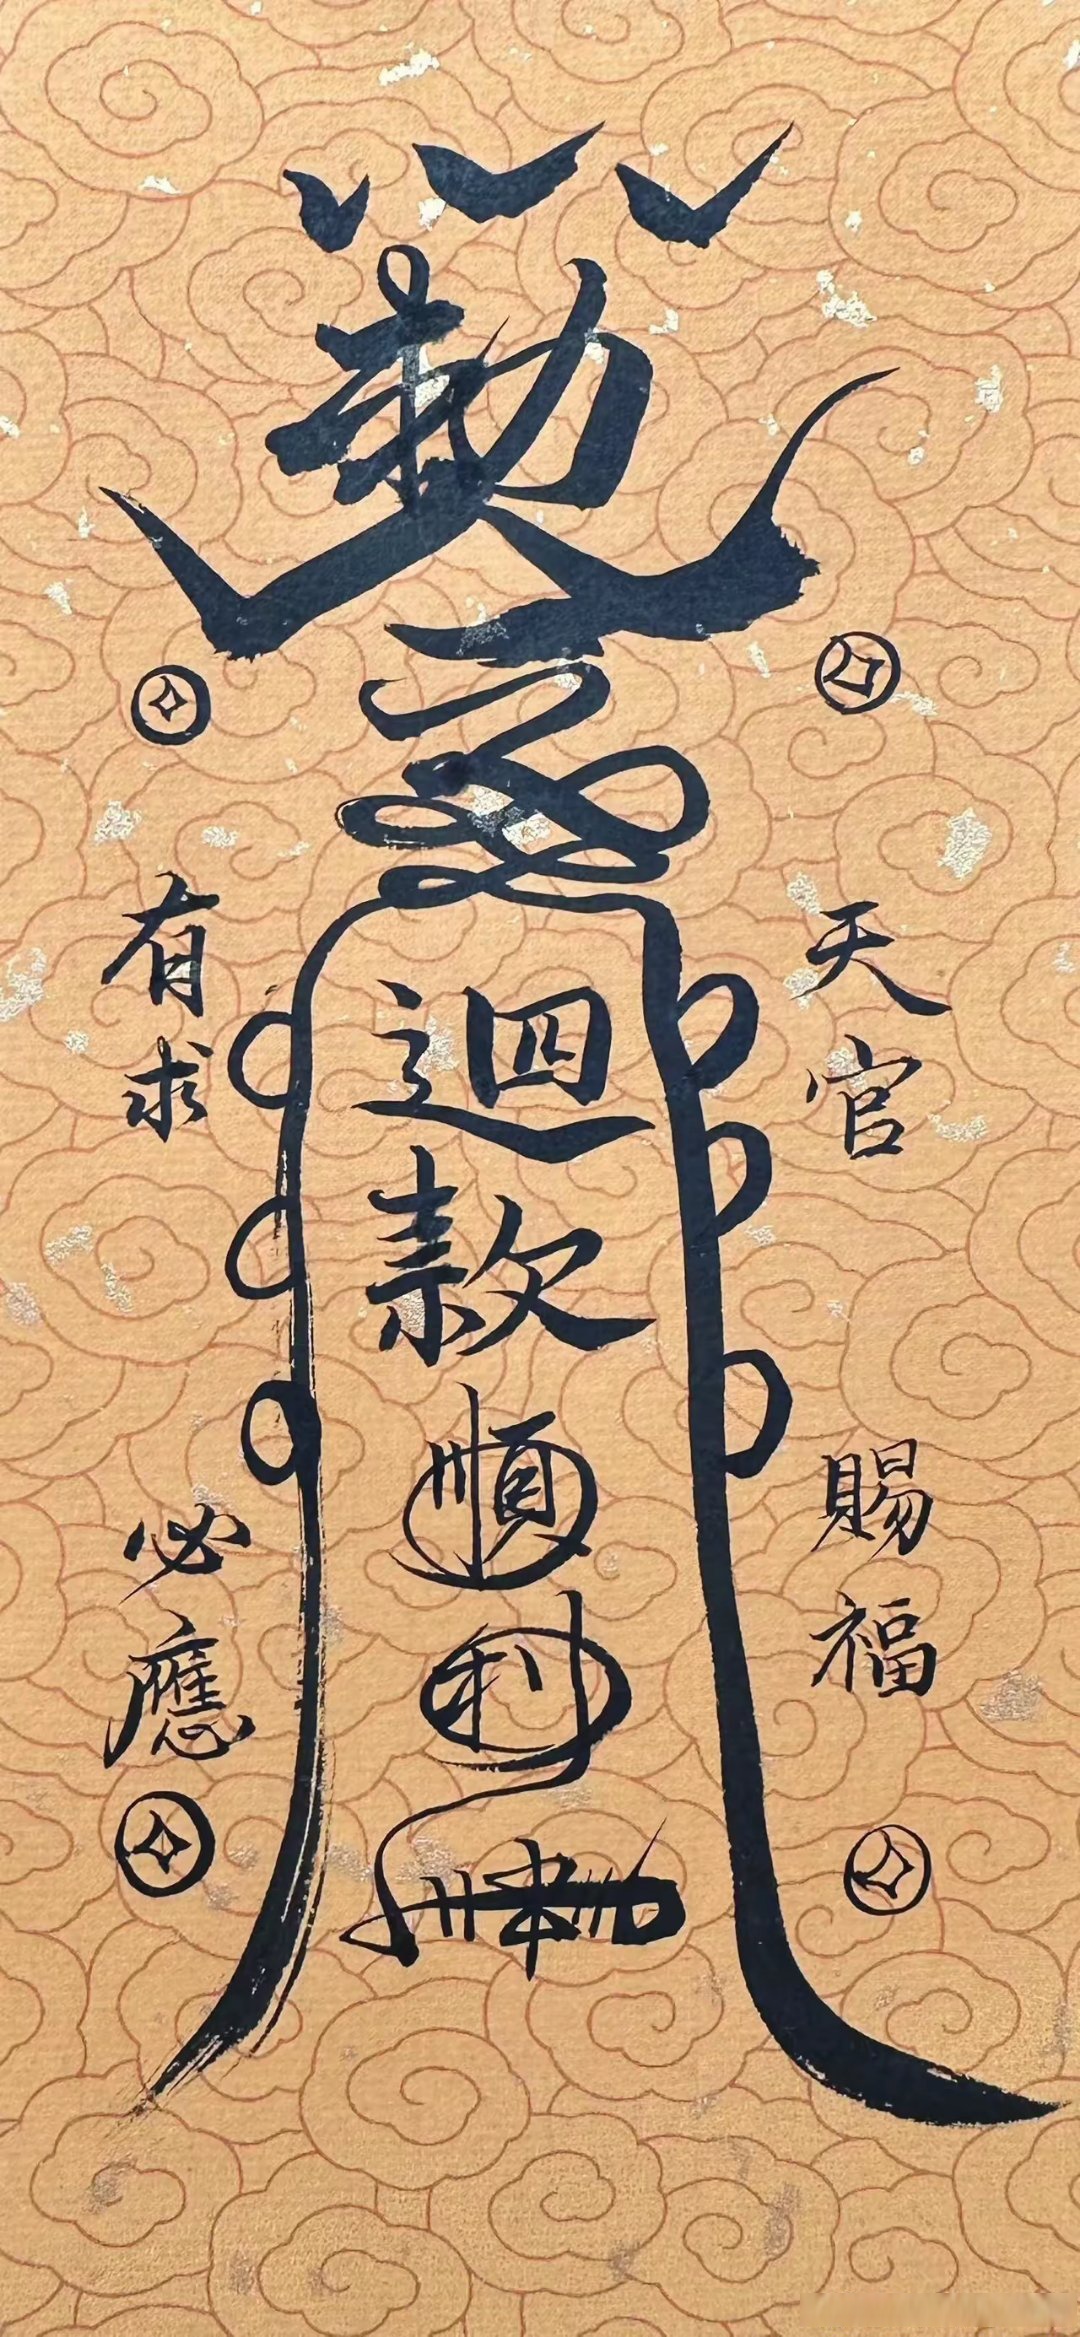 天官賜福
勅令
迴款順利
有求必應